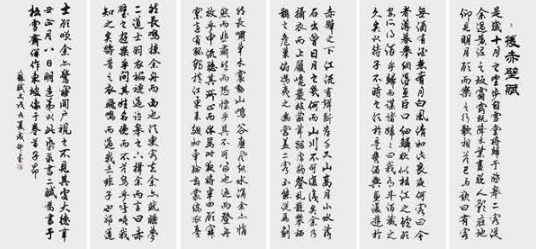 後赤壁賦
是歲十月之望步自雪堂將歸于臨皋二客從
余過黃泥之坂霜露既降木葉盡脫人影在地
仰見明月顧而樂之行歌相答已而歎曰有客
無酒有酒無肴月白風清如此良夜何客曰今
者薄暮舉網得魚巨口細鱗狀似松江之鱸顧
安所得酒乎歸而謀諸婦婦曰我有斗酒藏之
久矣以待子不時之須於是攜酒與魚復遊於
赤壁之下江流有聲斷岸千尺山高月小水落
石出曾日月之幾何而江山不可復識矣余乃
攝衣而上履巉巖披蒙茸踞虎豹登虯龍攀棲
鶻之危巢俯馮夷之幽宮蓋二客不能從焉劃
然長嘯草木震動山鳴谷應風起水涌余亦悄
然而悲肅然而恐凜乎其不可留也反而登舟
放乎中流聽其所止而休焉時夜將半四顧寂
寥適有孤鶴橫江東來翅如車輪玄裳縞衣戛
然長鳴掠余舟而西也須臾客去余亦就睡夢
二道士羽衣蹁躚過臨皋之下揖余而言曰赤
壁之遊樂乎問其姓名俛而不答嗚呼噫嘻我
知之矣疇昔之夜飛鳴而過我者非子也耶道
士顧笑余亦驚寤開戶視之不見其處大德辛
丑正月八日明遠弟以此紙求書二賦為書于
松雪齋併作東坡像于卷首子昂
蘇軾文戊戌夏